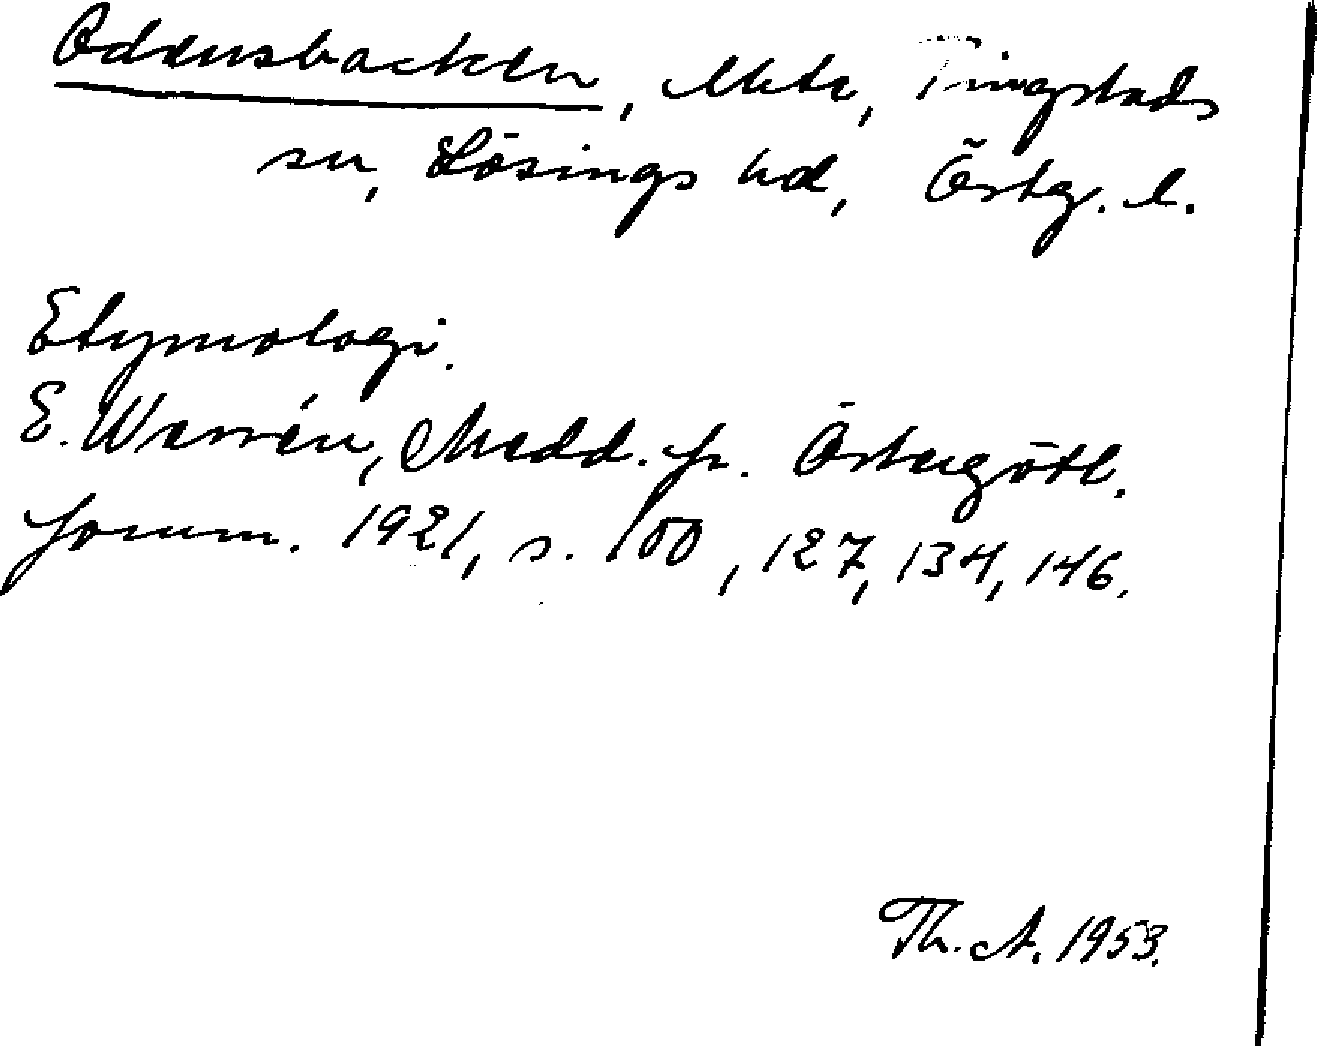 Odensbacken, Mete, Tingstads
sn, Lösings hd, Östg. l.
Etymologi.
E. Warrén, Medd. fr. Östergötl.
fornm. 1921, s. 100, 127, 134, 146.
Th. A. 1953.